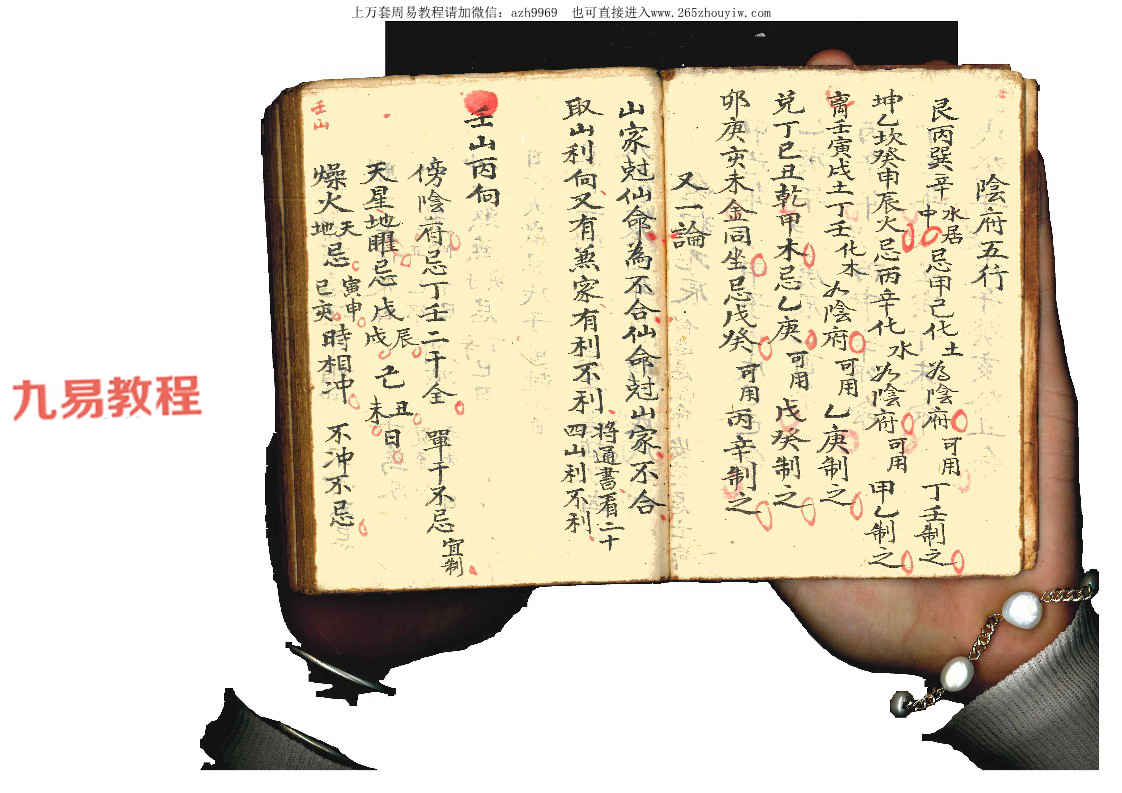 上万套周易教程请加微信：azh9969 也可直接进入www.265zhouyiw.com
陰府五行
艮丙巽辛水居中忌甲己化土為陰府可用丁壬制之
坤乙坎癸申辰火忌丙辛化水為陰府可用甲乙制之
离壬寅戌土丁壬化木為陰府可用乙庚制之
兌丁巳丑乾甲木忌乙庚可用戊癸制之
卯庚亥未金同坐忌戊癸可用丙辛制之
又一論
山家尅仙命為不合仙命尅山家不合
取山利向又有兼家有利不利將通書看二十四山利不利
壬山丙向
傍陰府忌丁壬二干全單干不忌宜制
天星地曜忌戊辰戌乙丑未日
燥火天地忌寅申巳亥時相冲不冲不忌
壬山
九易教程